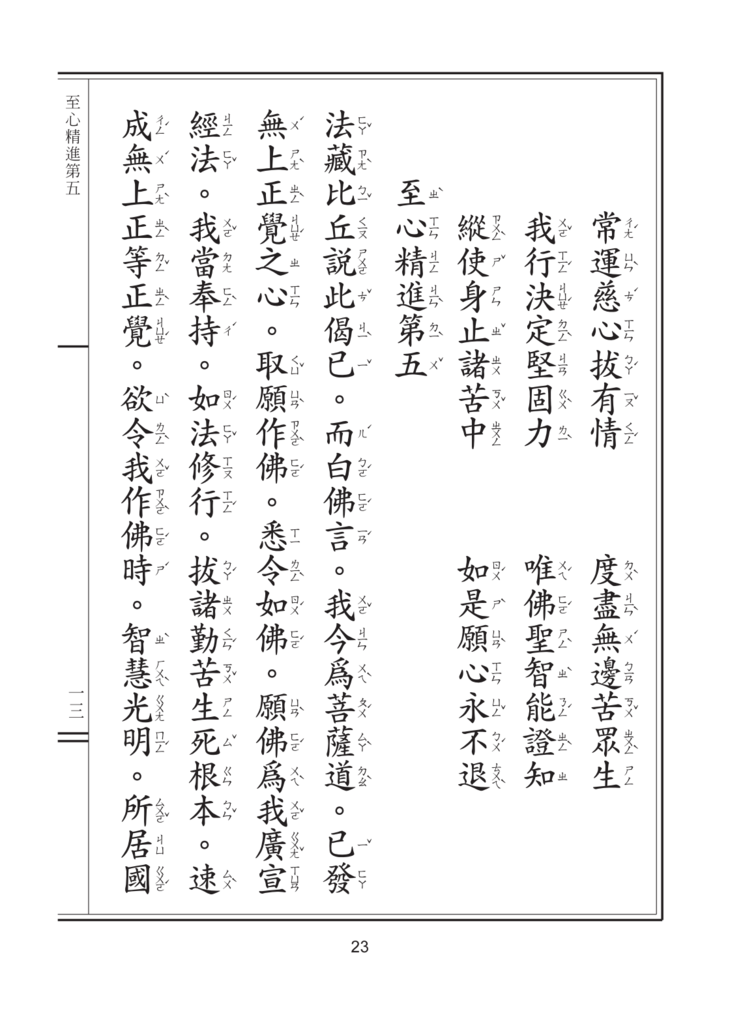 常運慈心拔有情　度盡無邊苦眾生
我行決定堅固力　唯佛聖智能證知
縱使身止諸苦中　如是願心永不退
至心精進第五
法藏比丘說此偈已。而白佛言。我今為菩薩道。已發
無上正覺之心。取願作佛。悉令如佛。願佛為我廣宣
經法。我當奉持。如法修行。拔諸勤苦生死根本。速
成無上正等正覺。欲令我作佛時。智慧光明。所居國
至心精進第五
一三
23